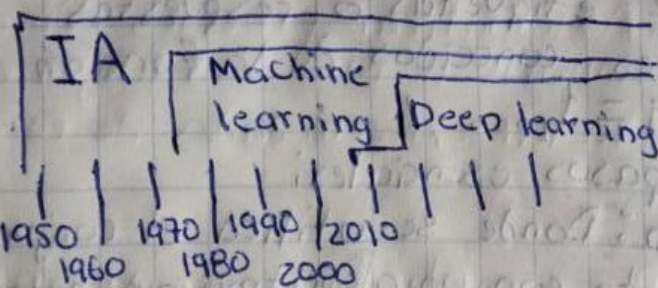 IA
Machine
learning
Deep learning
1950 1970 1990 2010
1960 1980 2000